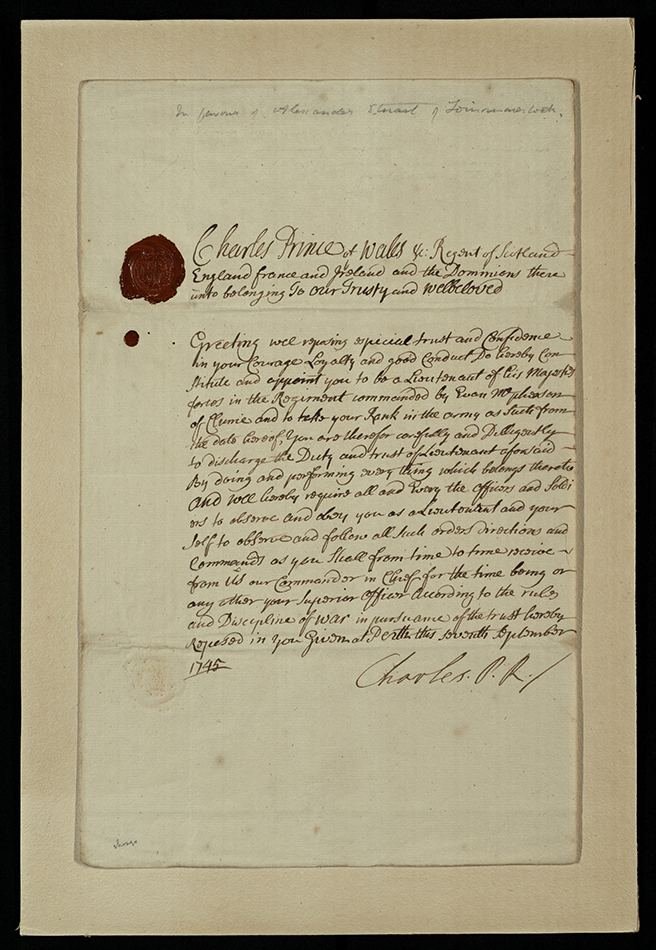 In favour of Alexander Stuart of
Charles Prince of Wales &c: Regent of Scotland
England france and Ireland and the Dominions there
unto belonging To our Trusty and Welbeloved
Greeting wee reposing especial trust and Confidence
in your Courage Loyalty and good Conduct Do hereby Con
stitute and appoint you to be a Lieutenant of his Majestys
forces in the Regiment commanded by Evan McPherson
of Clunie and to take your Rank in the army as Such from
the date hereof, You are therefor carefully and Dilligently
to discharge the Duty and trust of Lieutenant aforsaid
By doing and performing every thing which belongs thereto
And wee hereby require all and Every the officers and Soldi
ers to observe and obey you as a Lieutenant and your
self to observe and follow all Such orders directions and
Commands as you Shall from time to time receive
from Us our Commander in Chief for the time being or
any other your Superior Officer According to the rules
and Discipline of War in pursuance of the trust hereby
Reposed in You Given at Perth this seventh September
1745
Charles. P. R./